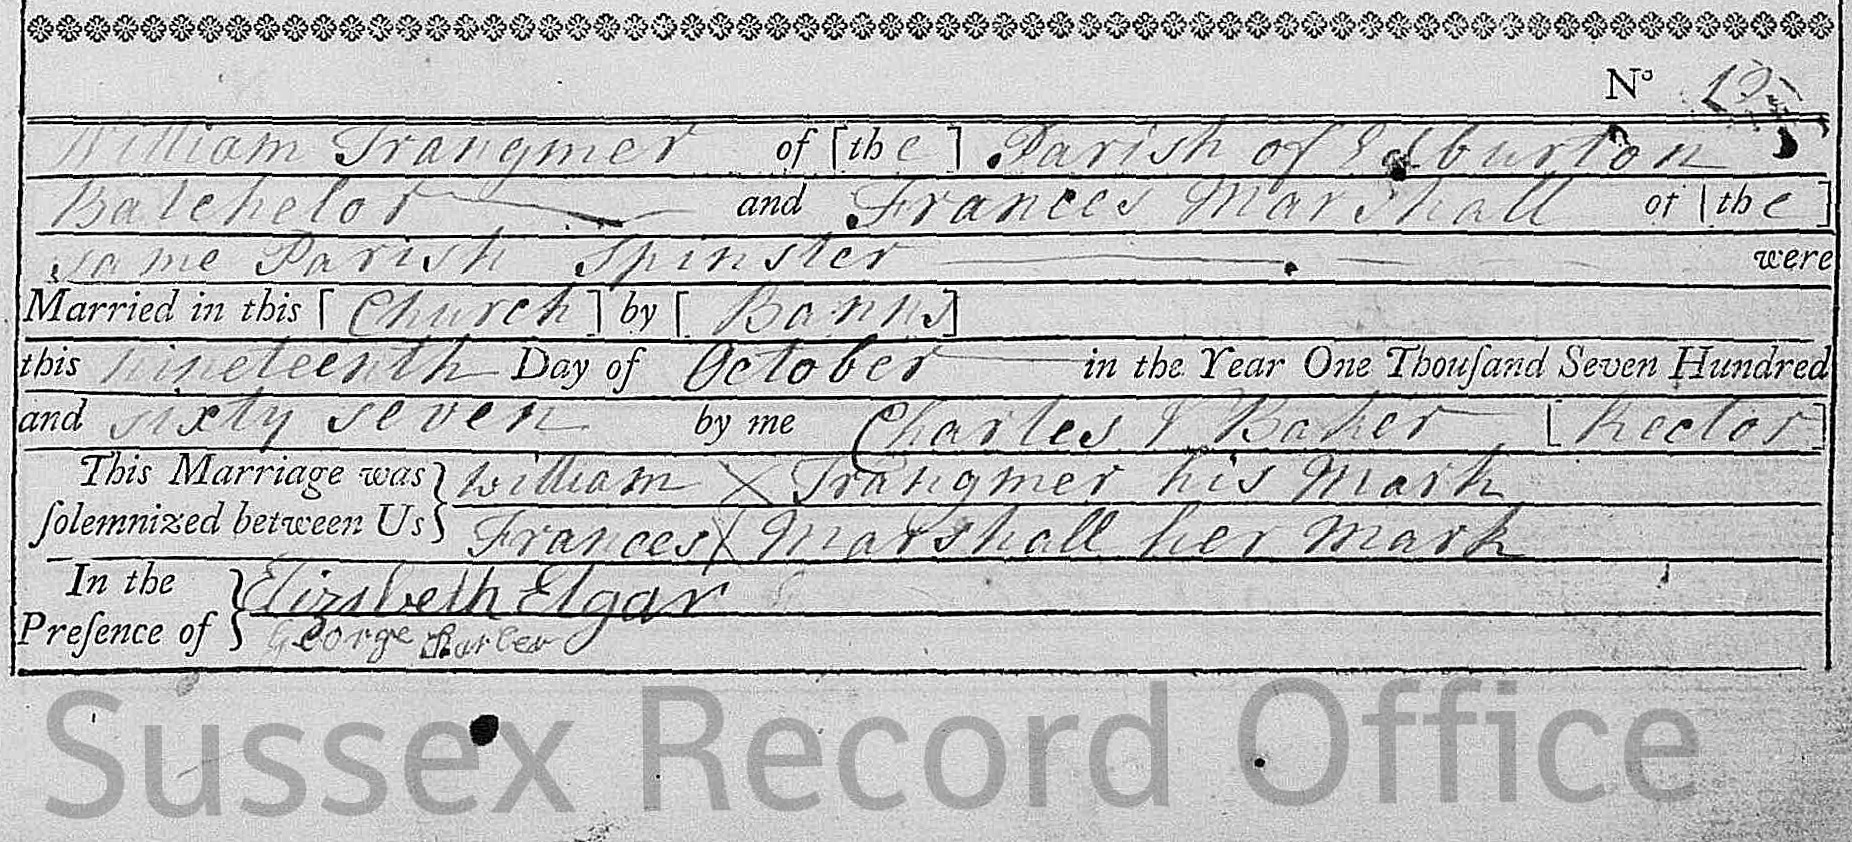 No 12
William Trangmer of [the] Parish of Edburton
Batchelor and Frances Marshall of [the]
same Parish Spinster were
Married in this [Church] by [Banns]
this nineteenth Day of October in the Year One Thouſand Seven Hundred
and sixty seven by me Charles J Baker [Rector]
This Marriage was William X Trangmer his Mark
ſolemnized between Us Frances X Marshall her Mark
In the Elizabeth Elgar
Preſence of George
Sussex Record Office